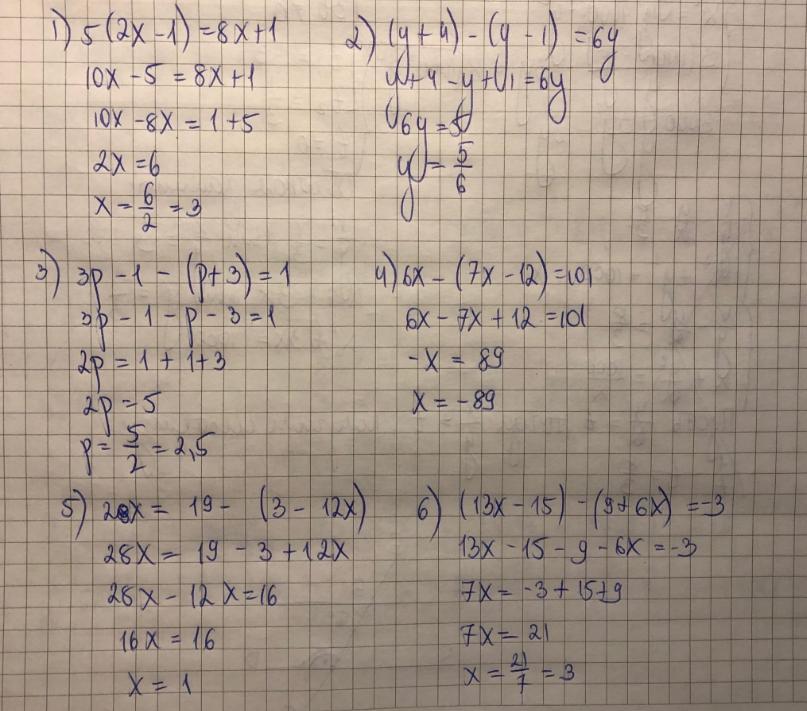 1) 5(2x-1)=8x+1
10x-5=8x+1
10x-8x=1+5
2x=6
x=6/2=3
2) (y+4)-(y-1)=6y
y+4-y+1=6y
6y=5
y=5/6
3) 3p-1-(p+3)=1
3p-1-p-3=1
2p=1+1+3
2p=5
p=5/2=2,5
4) 6x-(7x-12)=101
6x-7x+12=101
-x=89
x=-89
5) 28x=19-(3-12x)
28x=19-3+12x
28x-12x=16
16x=16
x=1
6) (13x-15)-(9+6x)=-3
13x-15-9-6x=-3
7x=-3+15+9
7x=21
x=21/7=3